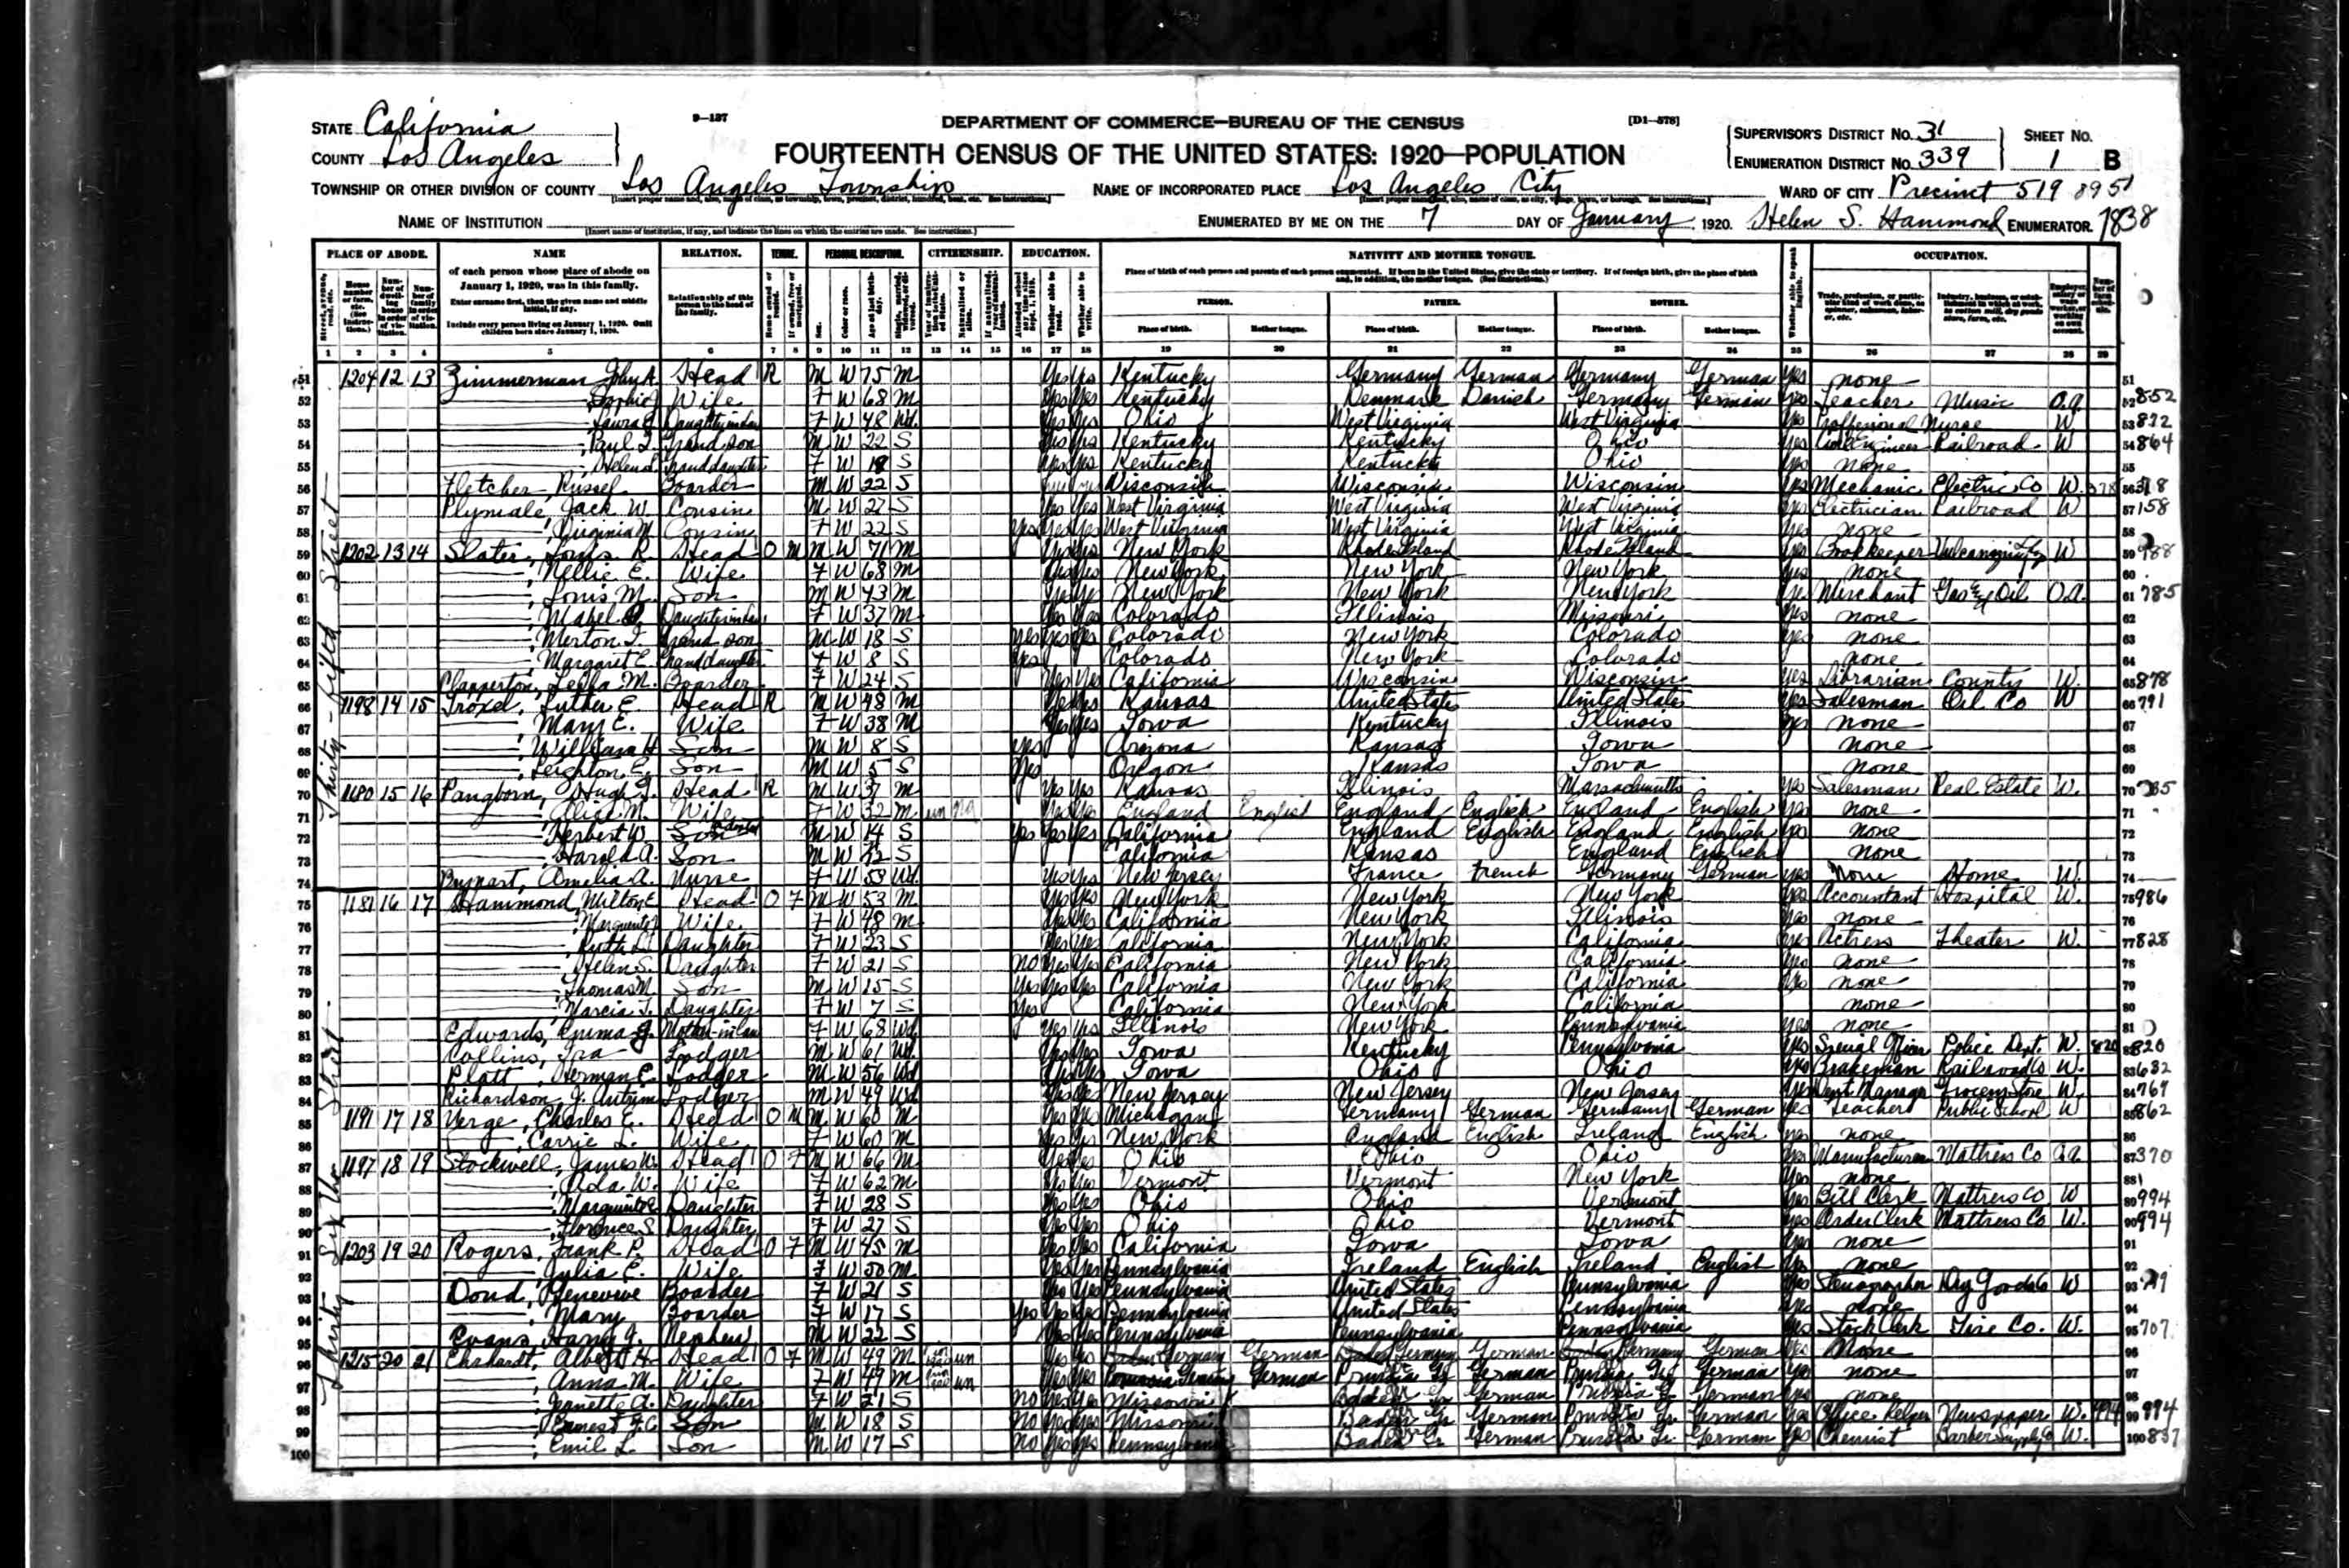 STATE California
9—137
DEPARTMENT OF COMMERCE—BUREAU OF THE CENSUS
[D1—578]
SUPERVISOR'S DISTRICT No. 31
SHEET No.
COUNTY Los Angeles
FOURTEENTH CENSUS OF THE UNITED STATES: 1920—POPULATION
ENUMERATION DISTRICT No. 339
1 B
TOWNSHIP OR OTHER DIVISION OF COUNTY Los Angeles Township
NAME OF INCORPORATED PLACE Los Angeles City
WARD OF CITY Precinct 519 8951
NAME OF INSTITUTION
ENUMERATED BY ME ON THE 7 DAY OF January, 1920. Helen S. Hammond ENUMERATOR. 7838
PLACE OF ABODE. NAME RELATION. TENURE. PERSONAL DESCRIPTION. CITIZENSHIP. EDUCATION. NATIVITY AND MOTHER TONGUE. OCCUPATION.
of each person whose place of abode on January 1, 1920, was in this family.
Enter surname first, then the given name and middle initial, if any.
Include every person living on January 1, 1920. Omit children born since January 1, 1920.
Relationship of this person to the head of the family.
PERSON. FATHER. MOTHER.
Place of birth. Mother tongue. Place of birth. Mother tongue. Place of birth. Mother tongue.
1 2 3 4 5 6 7 8 9 10 11 12 13 14 15 16 17 18 19 20 21 22 23 24 25 26 27 28 29
Thirty-fifth Street
51 1204 12 13 Zimmerman John A. Head R M W 75 M Yes Yes Kentucky Germany German Germany German Yes none 51
52 Sophie Wife F W 68 M Yes Yes Kentucky Denmark Danish Germany German Yes Teacher Music O.A. 52 852
53 Laura Daughter in law F W 48 Wd. Yes Yes Ohio West Virginia West Virginia Yes Proffesional Nurse W 53 872
54 Paul Grand son M W 22 S Yes Yes Kentucky Kentucky Ohio Yes Railroad W 54 864
55 Helen Granddaughter F W 18 S Yes Yes Kentucky Kentucky Ohio Yes none 55
56 Fletcher, Russel Boarder M W 22 S Wisconsin Wisconsin Wisconsin Yes Mechanic Electric Co W. 56
57 Plymale, Jack W. Cousin M W 27 S Yes Yes West Virginia West Virginia West Virginia Yes Electrician Railroad W 57 158
58 Virginia M. Cousin F W 22 S Yes Yes Yes West Virginia West Virginia West Virginia Yes none 58
59 1202 13 14 Slater, Louis R. Head O M M W 71 M Yes Yes New York Rhode Island Rhode Island Yes Bookkeeper W 59 988
60 Nellie E. Wife F W 68 M Yes Yes New York New York New York Yes none 60
61 Louis M. Son M W 43 M Yes Yes New York New York New York Yes Merchant Gas & Oil O.A. 61 785
62 Mabel Daughter in law F W 37 M Yes Yes Colorado Illinois Missouri Yes none 62
63 Merton Grand son M W 18 S Yes Yes Yes Colorado New York Colorado Yes none 63
64 Margaret E. Granddaughter F W 8 S Yes Colorado New York Colorado none 64
65 Clapperton, Leila M. Boarder F W 24 S Yes Yes California Wisconsin Wisconsin Yes Librarian County W. 65 878
66 1198 14 15 Troxel, Luther E. Head R M W 48 M Yes Yes Kansas United States United States Yes Salesman Oil Co W 66 791
67 Mary E. Wife F W 38 M Yes Yes Iowa Kentucky Illinois Yes none 67
68 William H Son M W 8 S Yes Arizona Kansas Iowa none 68
69 Leighton E. Son M W 5 S Yes Oregon Kansas Iowa none 69
70 1180 15 16 Pangborn, Hugh Head R M W 37 M Yes Yes Kansas Illinois Massachusetts Yes Salesman Real Estate W. 70
71 Alice M. Wife F W 32 M un na Yes Yes England English England English England English Yes none 71
72 Herbert W. Son M W 14 S Yes Yes Yes California England English England English Yes none 72
73 Harold A. Son M W S California Kansas England English none 73
74 Amelia A. Nurse F W 53 Wd. Yes Yes New Jersey France French Germany German Yes None Home W. 74
Thirty Sixth Street
75 1181 16 17 Hammond, Milton E. Head O F M W 53 M Yes Yes New York New York New York Yes Accountant Hospital W. 75 986
76 Marguerite Wife F W 48 M Yes Yes California New York Illinois Yes none 76
77 Ruth Daughter F W 23 S Yes Yes California New York California Yes Actress Theater W. 77 828
78 Helen S. Daughter F W 21 S No Yes Yes California New York California Yes none 78
79 Thomas N. Son M W 15 S Yes Yes Yes California New York California Yes none 79
80 Marcia Daughter F W 7 S Yes California New York California none 80
81 Edwards, Emma J. Mother-in-law F W 68 Wd Yes Yes Illinois New York Pennsylvania Yes none 81
82 Collins, Ira Lodger M W 61 Wd. Yes Yes Iowa Kentucky Pennsylvania Yes Special Officer Police Dept W. 820 820
83 Platt, Herman E. Lodger M W 56 Wd Yes Yes Iowa Ohio Ohio Yes Brakeman Railroad W. 83 632
84 Richardson, J. Lodger M W 49 Wd Yes Yes New Jersey New Jersey New Jersey Yes Dept Manager Grocery Store W. 84 767
85 1191 17 18 Verge, Charles E. Head O M M W 60 M Yes Yes Michigan Germany German Germany German Yes Teacher Public School W 862
86 Carrie L. Wife F W 60 M Yes Yes New York England English Ireland English Yes none 86
87 1197 18 19 Stockwell, James W. Head O F M W 66 M Yes Yes Ohio Ohio Ohio Yes Manufacturer Mattress Co O.A. 87 370
88 Ada W. Wife F W 62 M Yes Yes Vermont Vermont New York Yes none 88
89 Marguerite Daughter F W 28 S Yes Yes Ohio Ohio Vermont Yes Bill Clerk Mattress Co. W 89 994
90 Florence S. Daughter F W 27 S Yes Yes Ohio Ohio Vermont Yes Order Clerk Mattress Co W. 90 994
91 1203 19 20 Rogers, Frank P. Head O F M W 45 M Yes Yes California Iowa Iowa Yes none 91
92 Julia E. Wife F W 50 M Yes Yes Pennsylvania Ireland English Ireland English Yes none 92
93 Doud, Genevieve Boarder F W 21 S Yes Yes Pennsylvania United States Pennsylvania Yes Stenographer Dry Goods Co W 93
94 Mary Boarder F W 17 S Yes Yes Yes Pennsylvania United States Pennsylvania Yes none 94
95 Evans, Harry J. Nephew M W 22 S Yes Yes Pennsylvania Pennsylvania Pennsylvania Yes Stock Clerk Tire Co. W. 95 707
96 1215 20 21 Ehrhardt, Albert H. Head O F M W 49 M un Yes Yes Baden Germany German Baden Germany German Baden Germany German Yes None 96
97 Anna M. Wife F W 49 M un Yes Yes Germany German Prussia German Prussia German Yes none 97
98 Jeanette A. Daughter F W 21 S No Yes Yes Missouri Baden German Prussia German Yes none 98
99 Ernest F.C. Son M W 18 S No Yes Yes Missouri Baden German Prussia German Yes Office Helper Newspaper W. 994 99 994
100 Emil L. Son M W 17 S No Yes Yes Pennsylvania Baden German Prussia German Yes Chemist Barber Supply Co W. 100 857